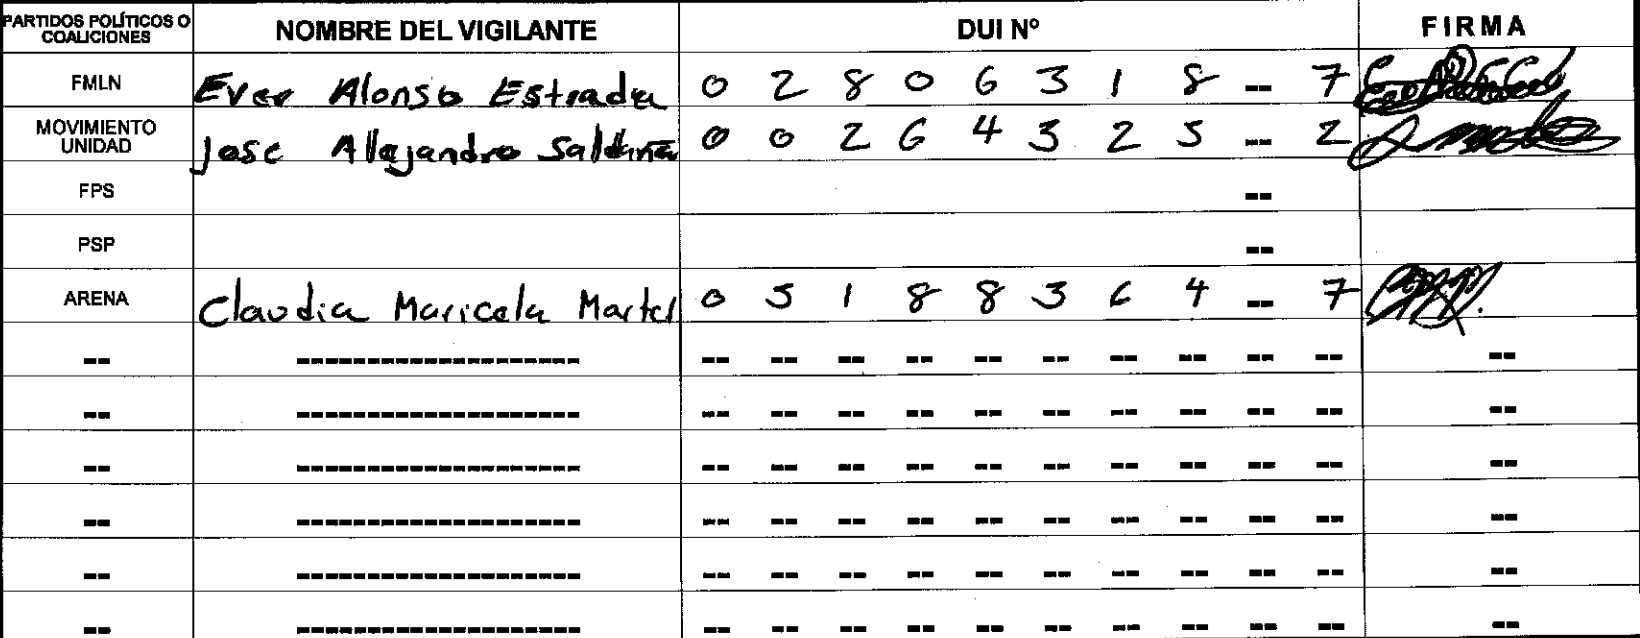 PARTIDOS POLÍTICOS O COALICIONES NOMBRE DEL VIGILANTE DUI Nº FIRMA
FMLN Ever Alonso Estrada 0 2 8 0 6 3 1 8 -- 7
MOVIMIENTO UNIDAD Jose Alejandro 0 0 2 6 4 3 2 5 -- 2
FPS --
PSP --
ARENA Claudia Maricela Martel 0 5 1 8 8 3 6 4 -- 7
-- ------------------- -- -- -- -- -- -- -- -- -- -- --
-- ------------------- -- -- -- -- -- -- -- -- -- -- --
-- ------------------- -- -- -- -- -- -- -- -- -- -- --
-- ------------------- -- -- -- -- -- -- -- -- -- -- --
-- ------------------- -- -- -- -- -- -- -- -- -- -- --
-- ------------------- -- -- -- -- -- -- -- -- -- -- --